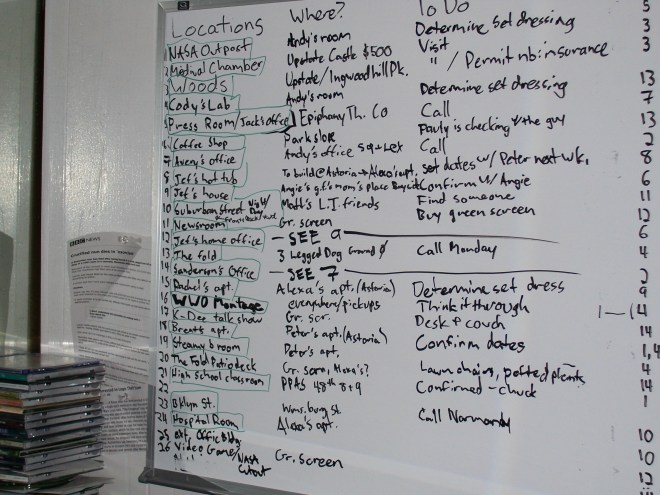 Locations Where? To Do 5
1 NASA Outpost Andy's room Determine set dressing 3
2 Medival Chamber Upstate Castle $500 Visit 3
3 Woods Upstate/Ingwood hill Pk. " / Permit nb: insurance
4 Cody's Lab Andy's room Determine set dressing 13
5 Press Room/Jack's office Epiphany Th. Co Call 7
6 Coffee Shop Park slope is checking the guy 13
7 Avery's office Andy's office Call 2
8 Jef's hot tub To build @ Astoria → Alexa's apt. set dates w/ Peter next wk. 8
9 Jef's house Angie's g.f.'s mom's place Confirm w/ Angie 6
10 Suburban Street Night/Day Matt's L.I. friends Find someone 11
11 Newsroom Gr. screen Buy green screen 12
12 Jef's home office — SEE 9 6
13 The fold 3 Legged Dog Ground 0 Call Monday 4
14 Sanderson's Office — SEE 7 2
15 Rachel's apt. Alexa's apt. (Astoria) Determine set dress 9
16 WWO Montage everywhere/pickups Think it through 1—(4
17 K-Dee talk show Gr. scr. Desk + couch 14
18 Brett's apt. Peter's apt. (Astoria) Confirm dates 1,4
19 Steamy b room Peter's apt.
20 The Fold Patio deck Gr. scrn, Alexa's? Lawn chairs, potted plants 4
21 High school classroom PPAS 48th 8+9 Confirmed - chuck 14
22 1
23 Bklyn St. Wms.burg St. Call Normandy
24 Hospital Room Alexa's apt. 10
25 ext. Office Bldg 10
26 Video Game/NASA Cutout Gr. screen 12
BBC NEWS